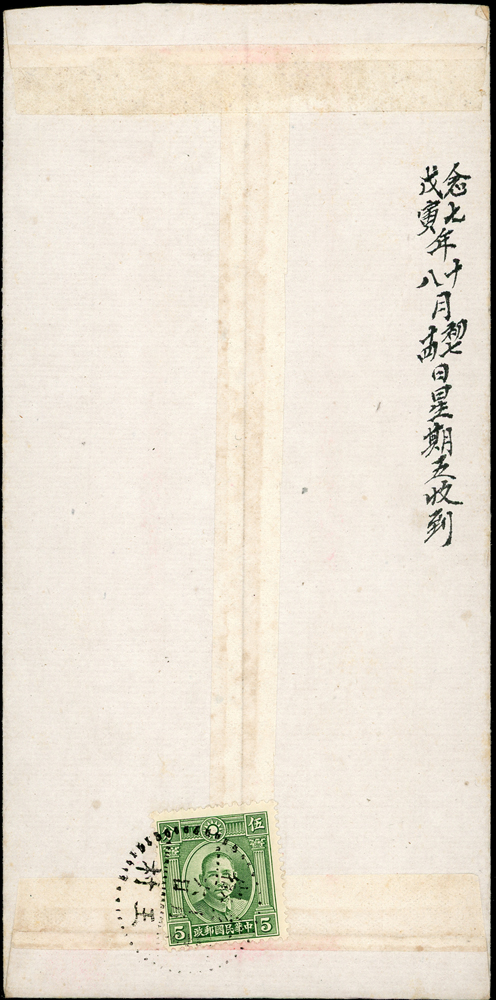 念七年十月初七日星期五收到
戊寅八十四
伍
5 中華民國郵政 5
王村